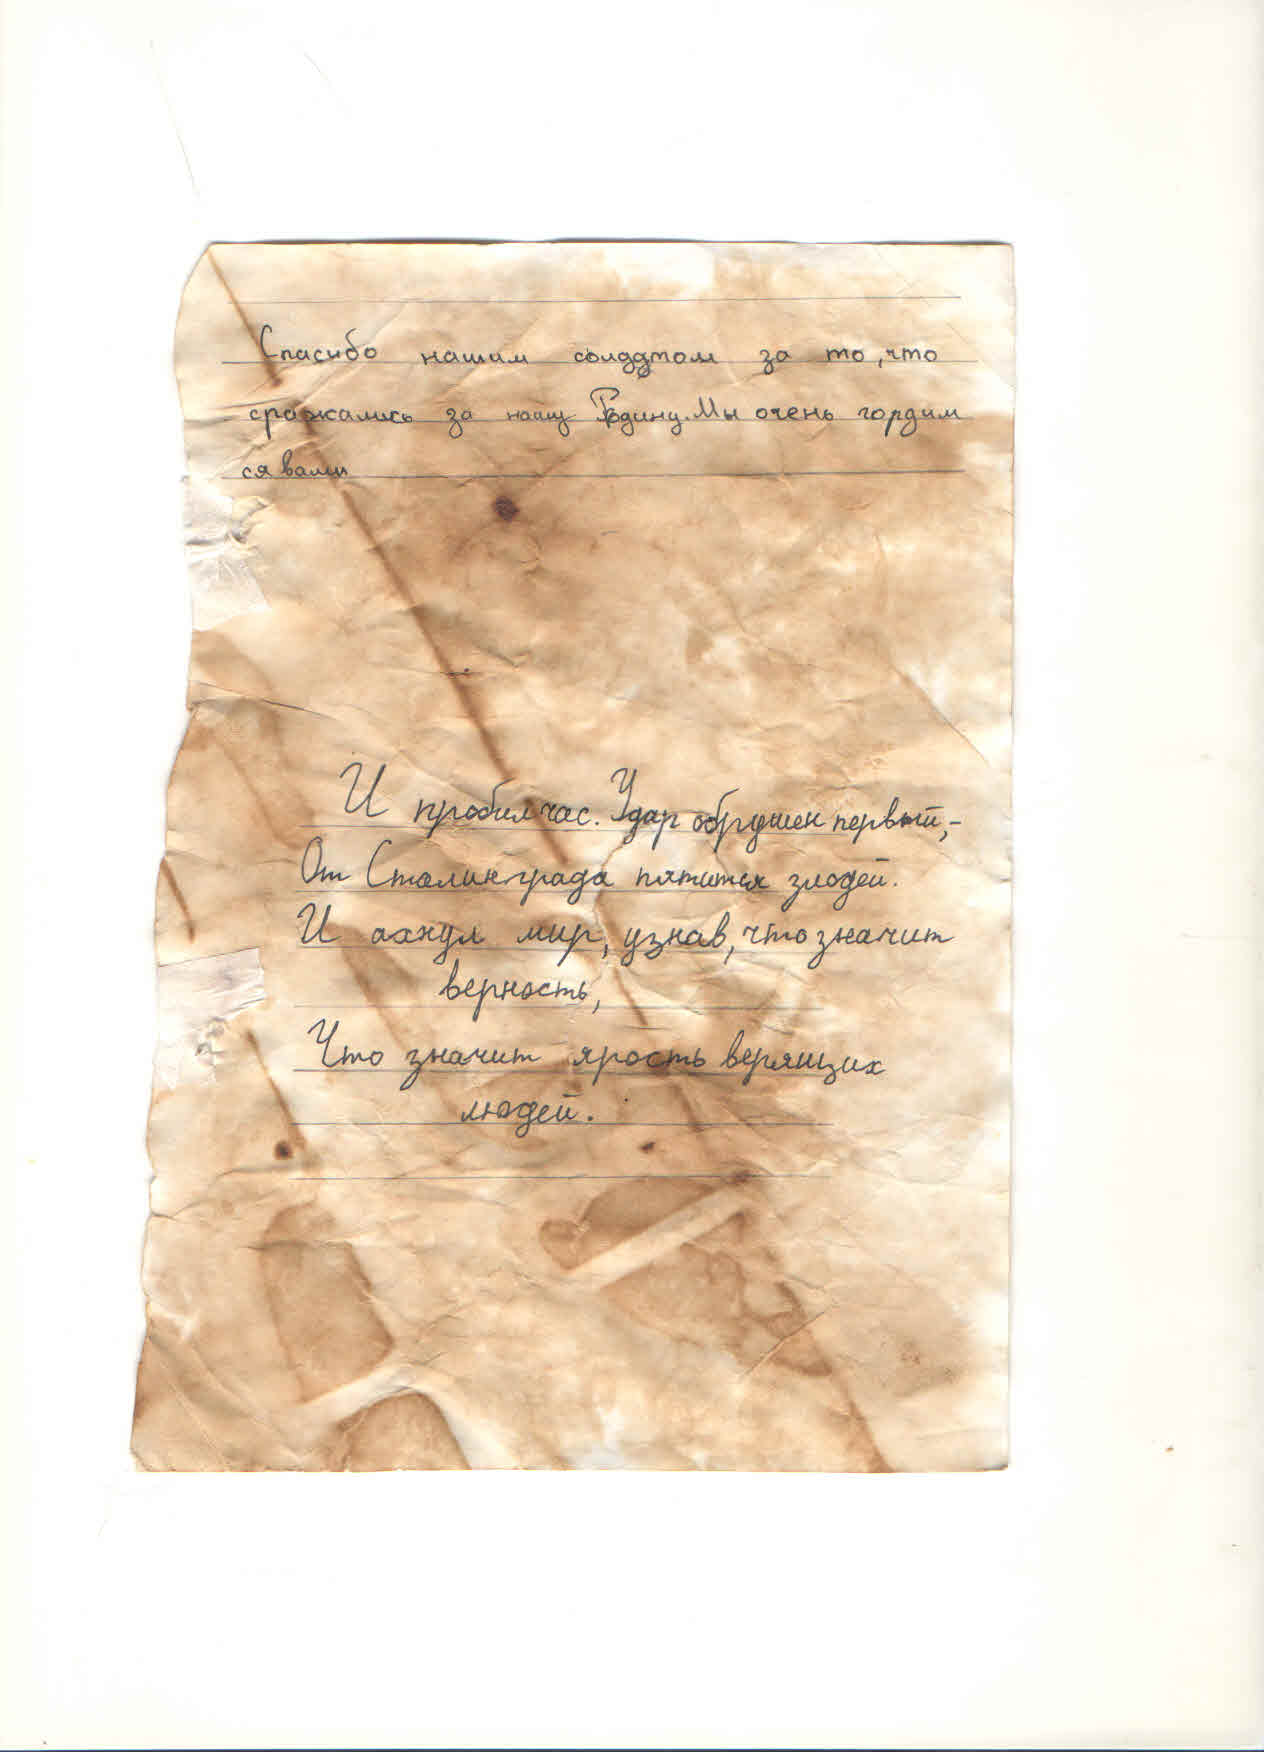 Спасибо нашим солдатом за то, что
сражались за нашу Родину. Мы очень гордим
ся вами
И пробил час. Удар обрушен первый,-
От Сталинграда пятится злодей.
И ахнул мир, узнав, что значит
верность,
Что значит ярость верящих
людей.